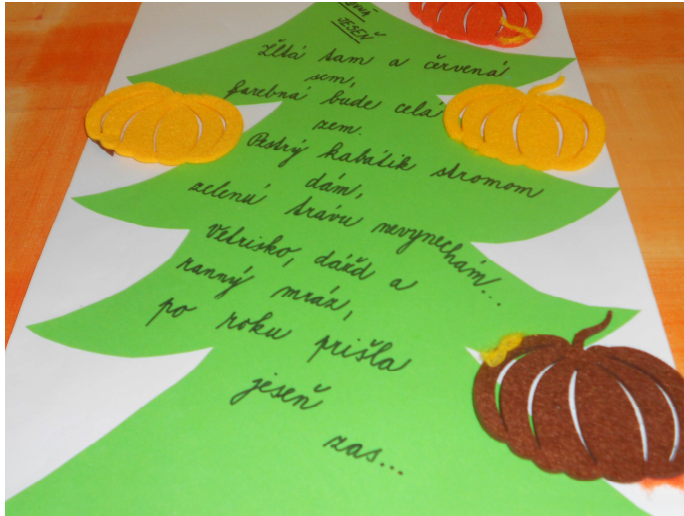 JESEŇ
Žltá tam a červená
sem,
farebná bude celá
zem.
Pestrý kabátik stromom
dám,
zelenú trávu nevynechám...
Vetrisko, dážd a
ranný mráz,
po roku prišla
jeseň
zas...